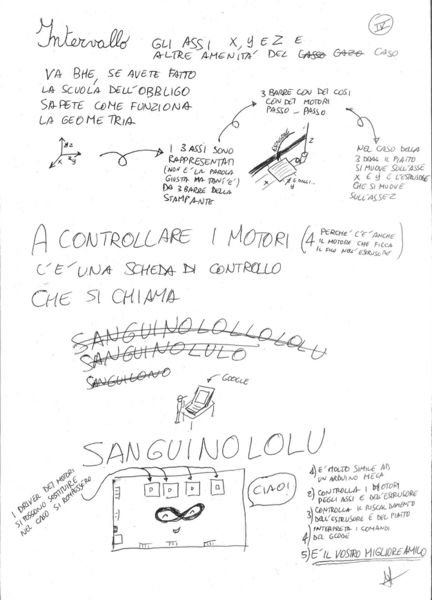 IV
Intervallo GLI ASSI X, Y E Z E
ALTRE AMENITÀ DEL CASSO CAZO CASO
VA BHE, SE AVETE FATTO
LA SCUOLA DELL'OBBLIGO
SAPETE COME FUNZIONA
LA GEOMETRIA
Z
X
Y
I 3 ASSI SONO
RAPPRESENTATI
(NON È LA PAROLA
GIUSTA MA TANT'È)
DA 3 BARRE DELLA
STAMPANTE
3 BARRE CON DEI COSI
CON DEI MOTORI
PASSO-PASSO
ESTRUSORE
Z
X
Y
NEL CASO DELLA
3DRAG IL PIATTO
SI MUOVE SULL'ASSE
X E Y E L'ESTRUSORE
CHE SI MUOVE
SULL'ASSE Z
A CONTROLLARE I MOTORI (4 PERCHÉ C'È ANCHE
IL MOTORE CHE FICCA
IL FILO NELL'ESTRUSORE)
C'È UNA SCHEDA DI CONTROLLO
CHE SI CHIAMA
SANGUINOLOLLOLOLU
SANGUINOLULO
SANGUILONO
GOOGLE
SANGUINOLULU
I DRIVER DEI MOTORI
SI POSSONO SOSTITUIRE
NEL CASO SI ROMPESSERO
CIAO!
1) È MOLTO SIMILE AD
UN ARDUINO MEGA
2) CONTROLLA I MOTORI
DEGLI ASSI E DELL'ESTRUSORE
3) CONTROLLA IL RISCALDAMENTO
DELL'ESTRUSORE E DEL PIATTO
4) INTERPRETA I COMANDI
DEL GCODE
5) È IL VOSTRO MIGLIORE AMICO